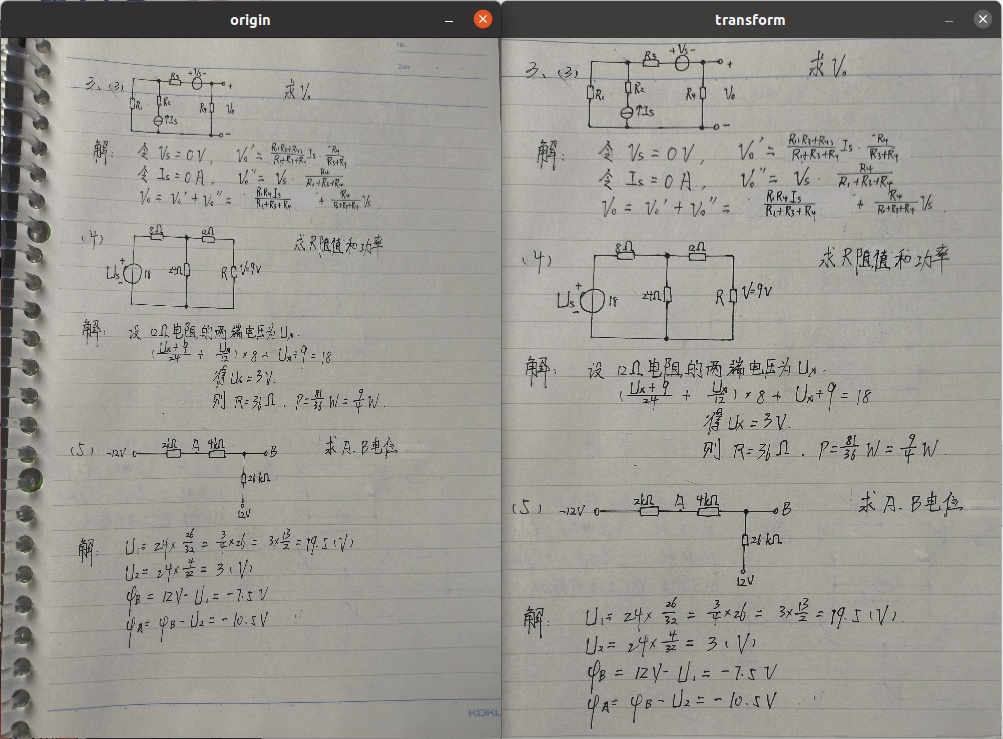 origin
No.
Date
三、(3)
R3
+Vs-
+
R1
R2
R4
V₀
↑Is
-
求V₀
解:
令 Vs = 0V, V₀' = R1(R3+R4)/(R1+R3+R4) Is · R4/(R3+R4)
令 Is = 0A, V₀'' = Vs · R4/(R1+R3+R4)
V₀ = V₀' + V₀'' = R1R4Is/(R1+R3+R4) + R4/(R1+R3+R4) Vs
(4)
8Ω
12Ω
Us
+
-
18
24Ω
R
V=9V
求R阻值和功率
解:
设12Ω电阻的两端电压为Ux.
(Ux+9/24 + Ux/12) × 8 + Ux+9 = 18
得Ux = 3V.
则 R=36Ω. P=81/36 W = 9/4 W.
(5)
-12V
2kΩ
A
4kΩ
B
26kΩ
12V
求A.B电位
解:
U₁= 24× 26/32 = 3/4 ×26 = 3× 13/2 = 19.5(V)
U₂= 24× 4/32 = 3(V)
φB = 12V - U₁ = -7.5V
φA = φB - U₂ = -10.5V
transform
三、(3)
R3
+Vs-
+
R1
R2
R4
V₀
↑Is
-
求V₀
解:
令 Vs = 0V, V₀' = R1(R3+R4)/(R1+R3+R4) Is · R4/(R3+R4)
令 Is = 0A, V₀'' = Vs · R4/(R1+R3+R4)
V₀ = V₀' + V₀'' = R1R4Is/(R1+R3+R4) + R4/(R1+R3+R4) Vs
(4)
8Ω
12Ω
Us
+
-
18
24Ω
R
V=9V
求R阻值和功率
解:
设12Ω电阻的两端电压为Ux.
(Ux+9/24 + Ux/12) × 8 + Ux+9 = 18
得Ux = 3V.
则 R=36Ω. P=81/36 W = 9/4 W.
(5)
-12V
2kΩ
A
4kΩ
B
26kΩ
12V
求A.B电位
解:
U₁= 24× 26/32 = 3/4 ×26 = 3× 13/2 = 19.5(V).
U₂= 24× 4/32 = 3(V)
φB = 12V - U₁ = -7.5V
φA = φB - U₂ = -10.5V